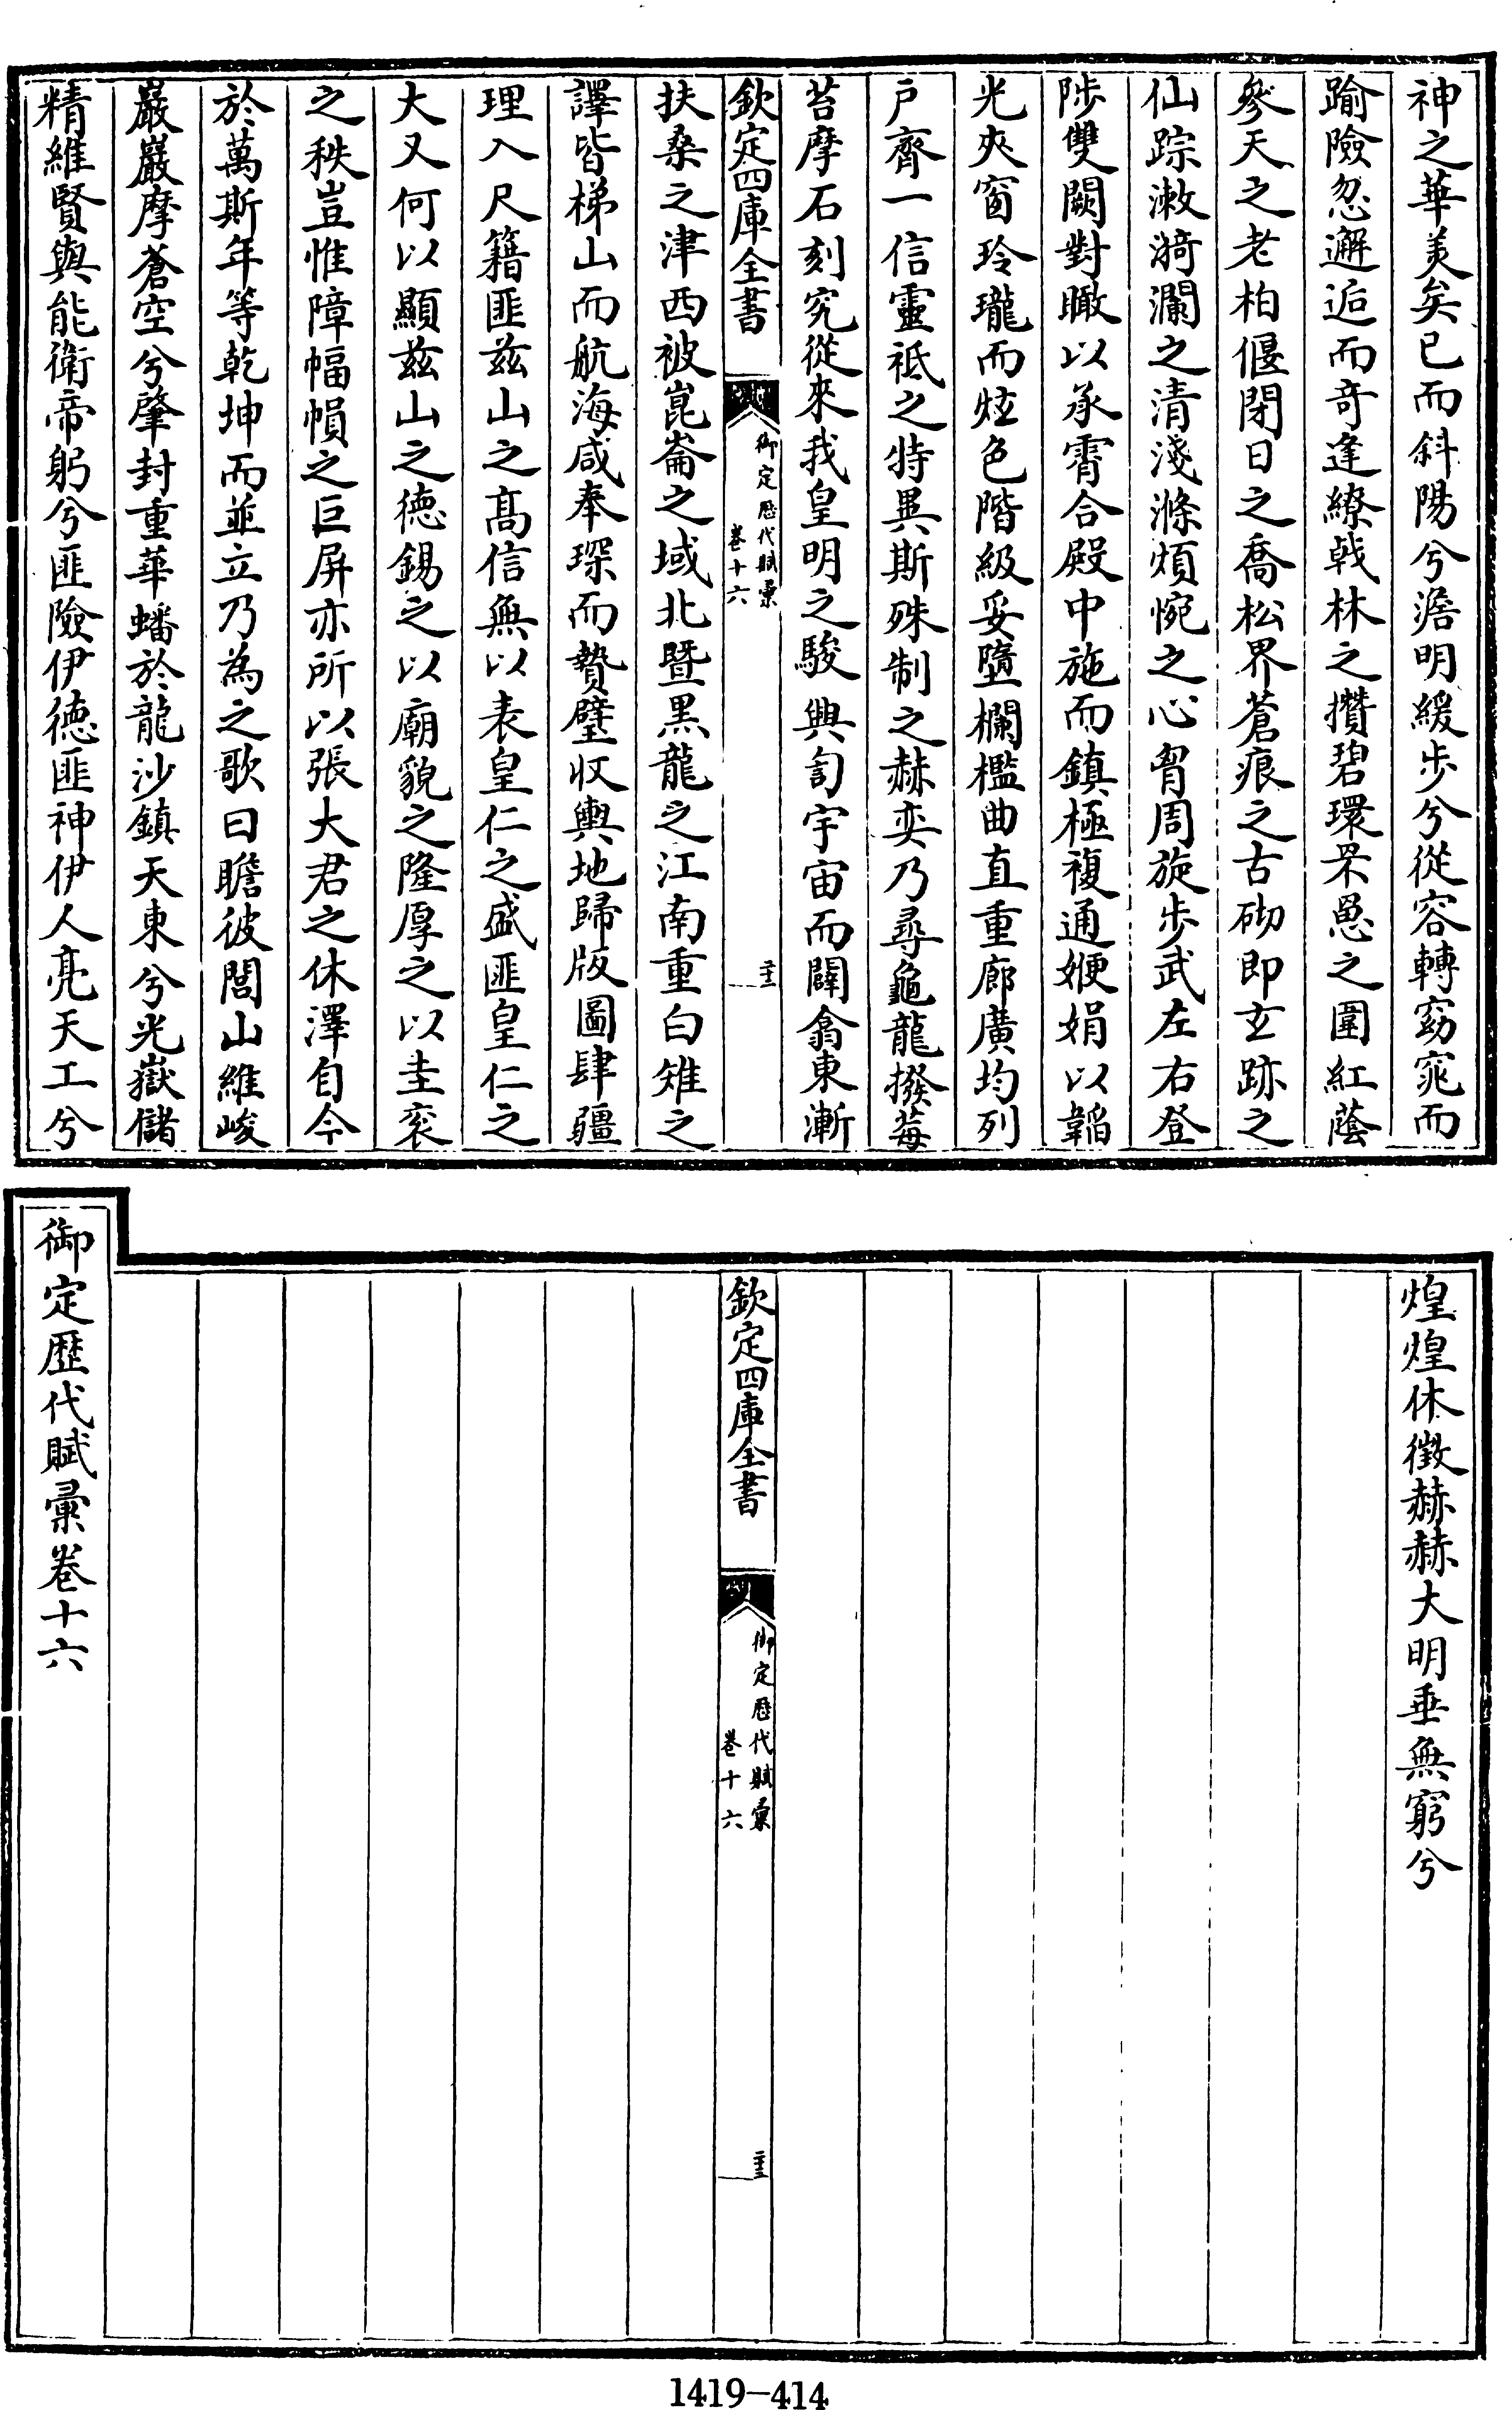 神之華美矣已而斜陽兮澹明緩步兮從容轉窈窕而
踰險忽邂逅而竒逢繚㦸林之攢碧環罘罳之圍紅蔭
參天之老柏偃閉日之喬松界蒼痕之古砌即𤣥跡之
仙踪漱漪瀾之清淺滌煩惋之心胷周旋步武左右登
陟雙闕對瞰以承霄合殿中施而鎮極複通㛹娟以韜
光夾窗玲瓏而炫色階級妥墮欄檻曲直重廊廣均列
户齊一信靈祇之特異斯殊制之赫奕乃尋龜龍撥莓
苔摩石刻究從來我皇明之駿興訇宇宙而闢翕東漸
欽定四庫全書
御定歴代賦彙
卷十六
二十三
扶桑之津西被崑崙之域北暨黒龍之江南重白雉之
譯皆梯山而航海咸奉琛而贄璧収輿地歸版圖肆疆
理入尺籍匪兹山之髙信無以表皇仁之盛匪皇仁之
大又何以顯兹山之徳錫之以廟貌之隆厚之以圭衮
之秩豈惟障幅幀之巨屏亦所以張大君之休澤自今
於萬斯年等乾坤而並立乃為之歌曰瞻彼閭山維峻
巖巖摩蒼空兮肇封重華蟠於龍沙鎮天東兮光嶽儲
精維賢與能衛帝躬兮匪險伊徳匪神伊人亮天工兮
煌煌休徴赫赫大明垂無窮兮
欽定四庫全書
御定歴代賦彙
卷十六
二十三
御定歴代賦彙卷十六
1419-414